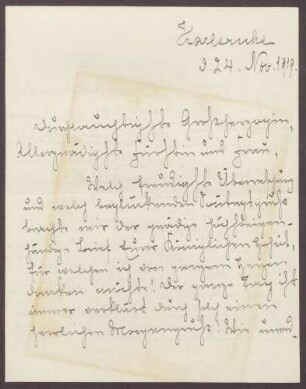 Karlsruhe
d. 24. Nov. 1919.
Durchlauchtigste Großherzogin,
Allergnädigste Fürstin und Frau,
Welch freudigste Überraschung
und welch beglückenden Sonntagsgruß
brachte mir der gnädige höchsteigen-
händige Brief Eurer Königlichen Hoheit,
für welchen ich von ganzem Herzen
danken möchte! Der ganze Tag ist
immer verklärt durch solch einen
herrlichen Morgengruß! Wie